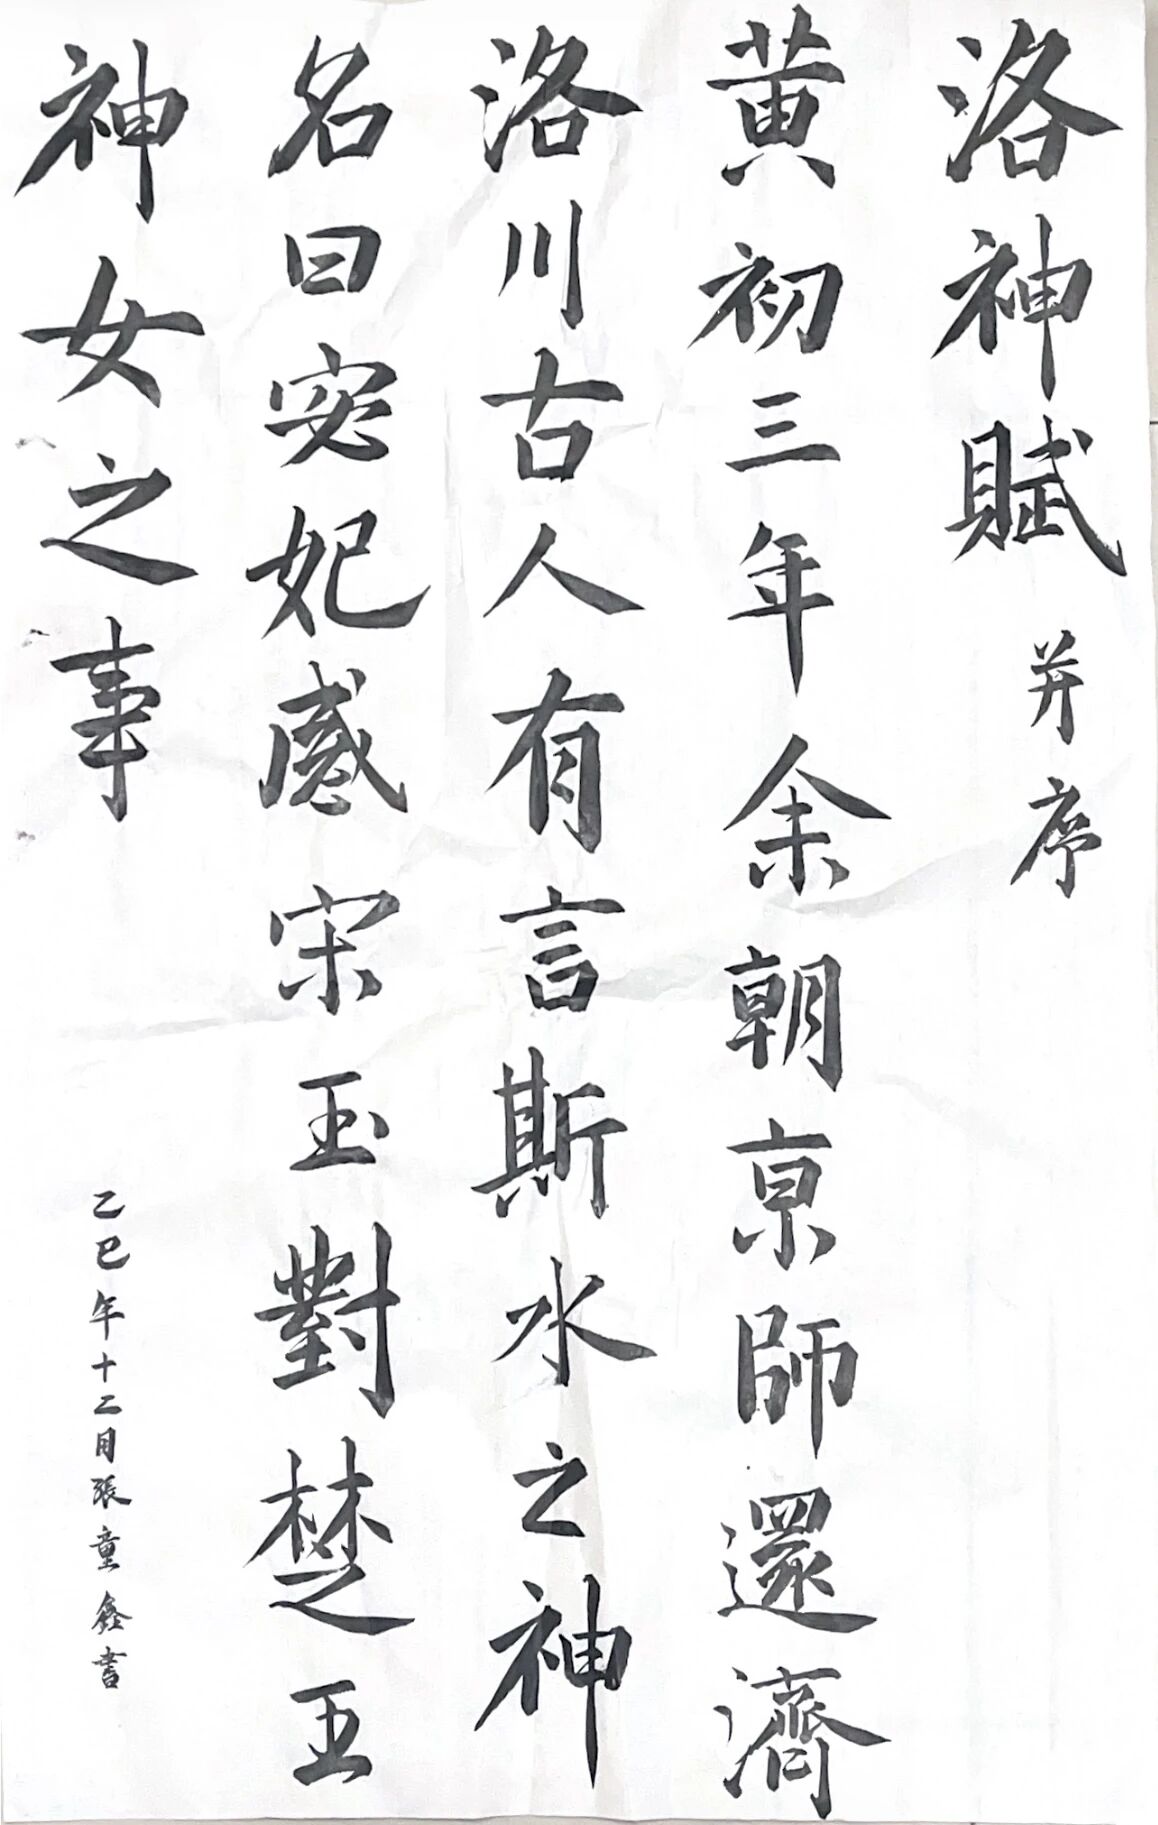 洛神賦并序
黄初三年余朝京師還濟
洛川古人有言斯水之神
名曰宓妃感宋玉對楚王
神女之事
乙巳年十二月張童鑫書